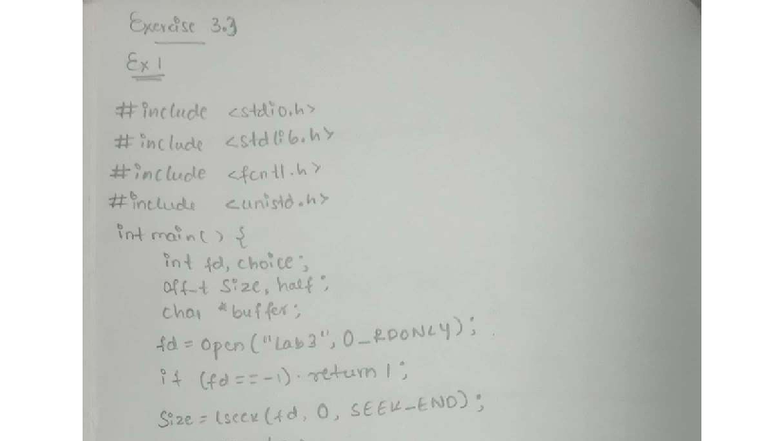 Exercise 3.3
Ex 1
#include <stdio.h>
#include <stdlib.h>
#include <fcntl.h>
#include <unistd.h>
int main() {
int fd, choice;
off_t size, half;
char *buffer;
fd = open("Lab3", O_RDONLY);
if (fd == -1) return 1;
Size = lseek(fd, 0, SEEK_END);